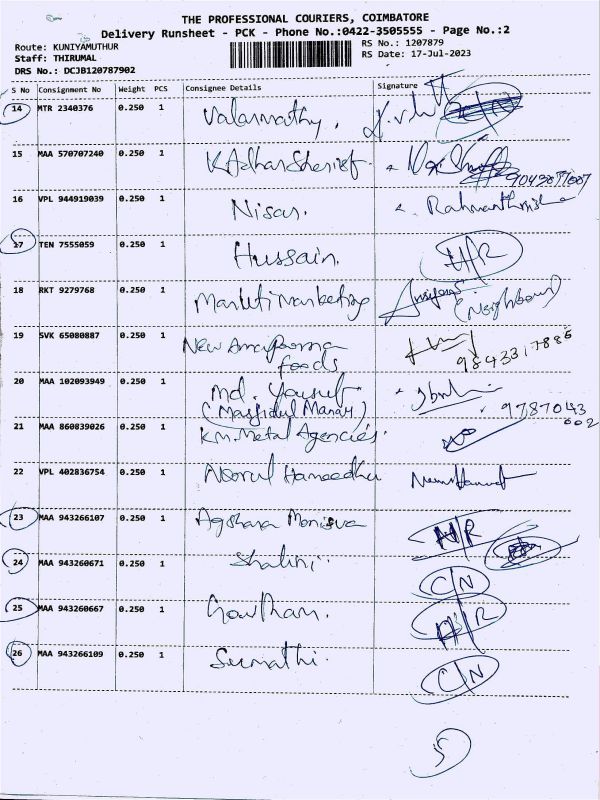 THE PROFESSIONAL COURIERS, COIMBATORE
Delivery Runsheet - PCK - Phone No.:0422-3505555 - Page No.:2
Route: KUNIYAMUTHUR RS No.: 1207879
Staff: THIRUMAL RS Date: 17-Jul-2023
DRS No.: DCJB120787902
S No Consignment No Weight PCS Consignee Details Signature
14 MTR 2340376 0.250 1 Valarmathy.
15 MAA 570707240 0.250 1
16 VPL 944919039 0.250 1 Nisar.
17 TEN 7555059 0.250 1 Hussain. H/R
18 RKT 9279768 0.250 1 Maruti Marketing (Neighbour)
19 SVK 65080887 0.250 1 New Annapoorna
foods
20 MAA 102093949 0.250 1 Md. Yousuf
(Masjidul Manar) 9787043
002
21 MAA 860839026 0.250 1 K.M. Metal Agencies.
22 VPL 402836754 0.250 1 Noorul Hameedhu
23 MAA 943266107 0.250 1 N/R
24 MAA 943260671 0.250 1 Shalini. C/N
25 MAA 943260667 0.250 1 Gowtham. N/R
26 MAA 943266109 0.250 1 Sumathi. C/N
5